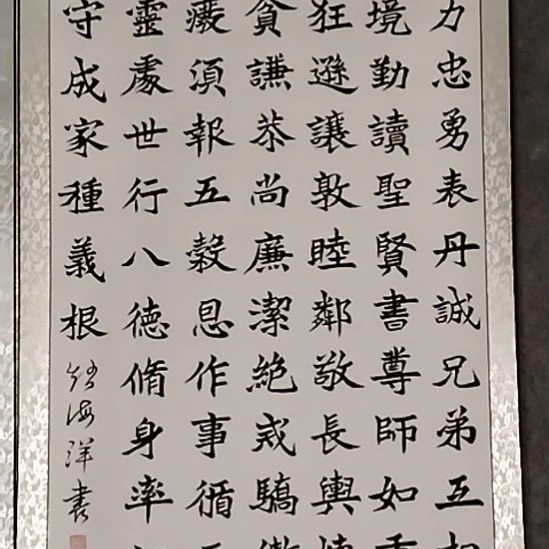 力忠勇表丹誠兄弟互相
境勤讀聖賢書尊師如重
狂遜讓敦睦鄰敬長與
貪謙恭尚廉潔絕戒驕傲
癜須報五穀恩作事循
靈處世行八德脩身率
守成家種義根
海洋書